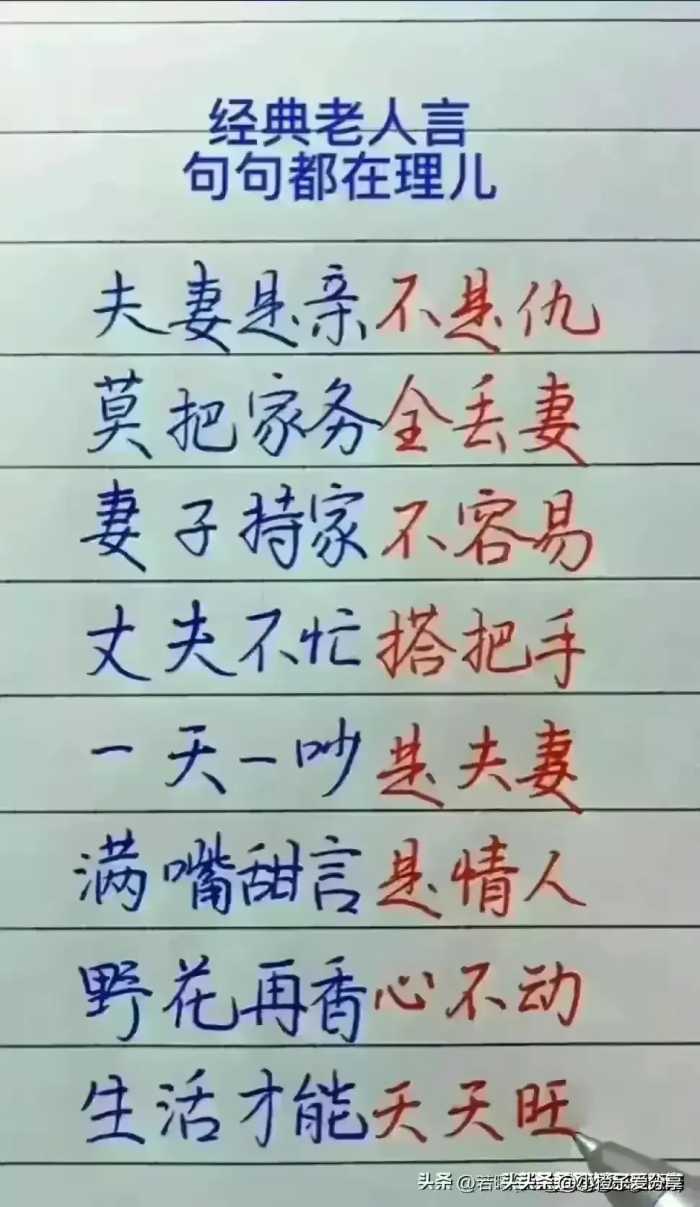 经典老人言
句句都在理儿
夫妻是亲不是仇
莫把家务全丢妻
妻子持家不容易
丈夫不忙搭把手
一天一吵是夫妻
满嘴甜言是情人
野花再香心不动
生活才能天天旺
头条 @若